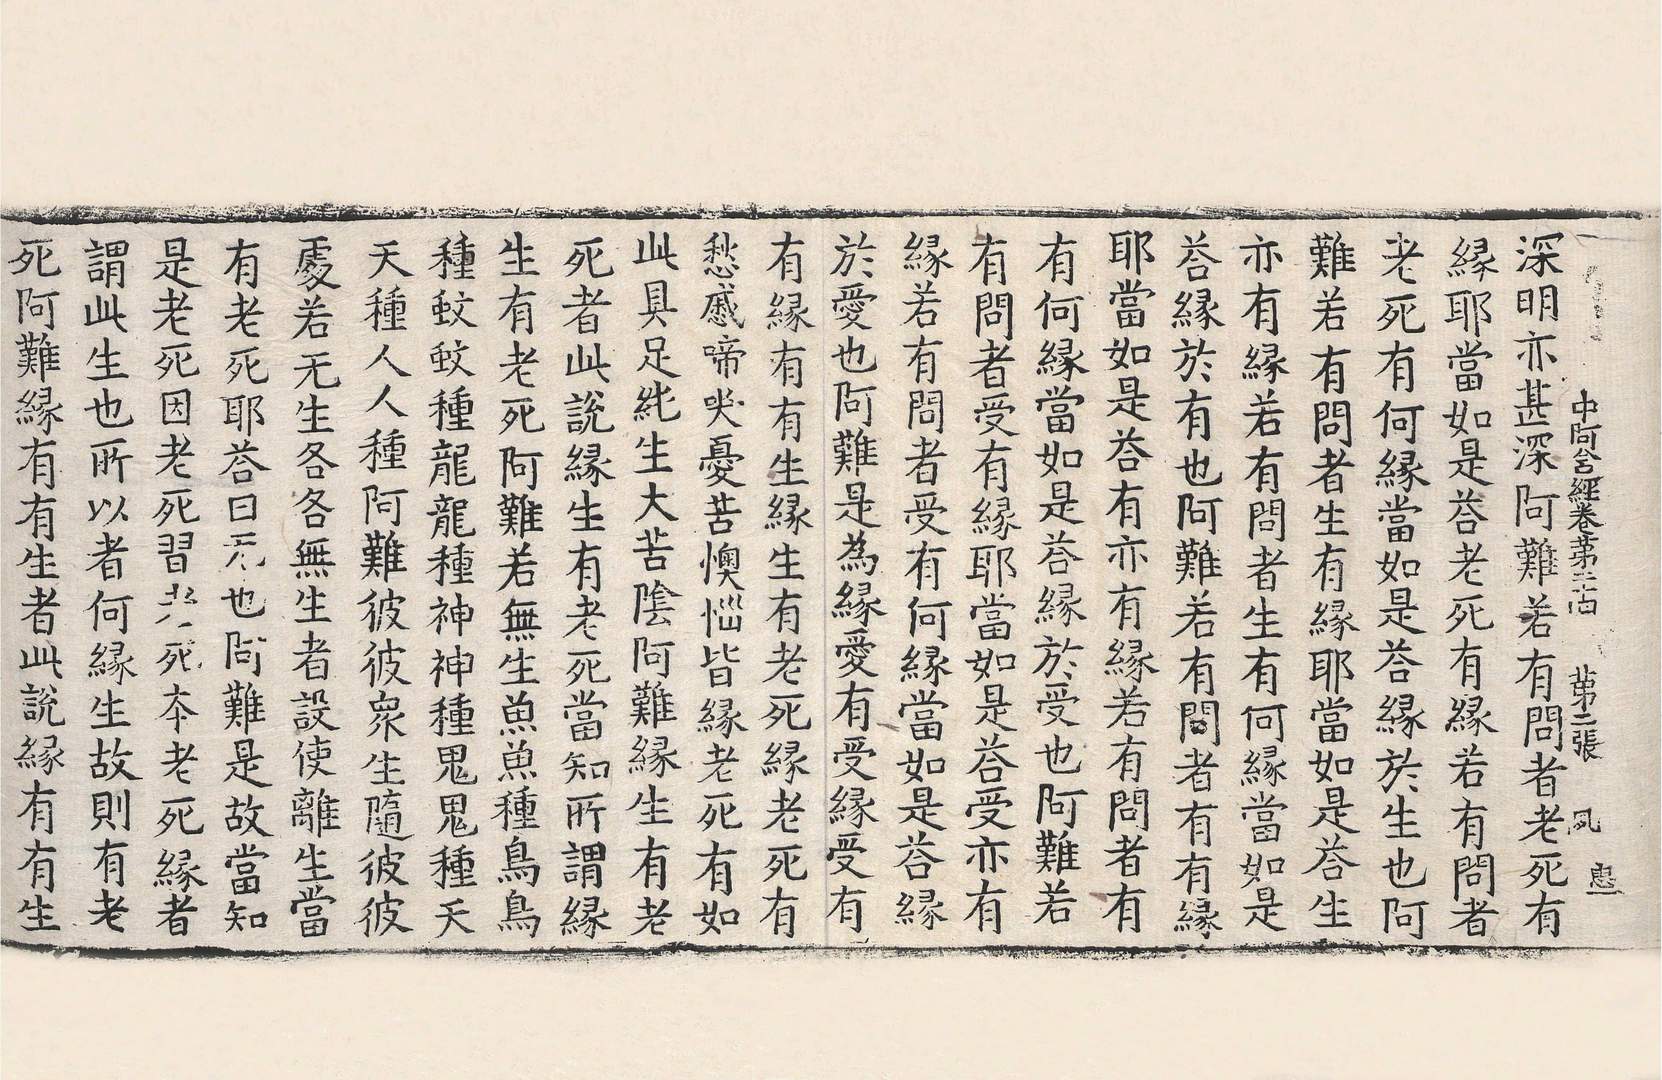 中阿含經卷第二十四 第二張 夙
深明亦甚深阿難若有問者老死有
緣耶當如是荅老死有緣若有問者
老死有何緣當如是荅緣於生也阿
難若有問者生有緣耶當如是荅生
亦有緣若有問者生有何緣當如是
荅緣於有也阿難若有問者有有緣
耶當如是荅有亦有緣若有問者有
有何緣當如是荅緣於受也阿難若
有問者受有緣耶當如是荅受亦有
緣若有問者受有何緣當如是荅緣
於愛也阿難是為緣愛有受緣受有
有緣有有生緣生有老死緣老死有
愁慼啼哭憂苦懊惱皆緣老死有如
此具足純生大苦陰阿難緣生有老
死者此說緣生有老死當知所謂緣
生有老死阿難若無生魚魚種鳥鳥
種蚊蚊種龍龍種神神種鬼鬼種天
天種人人種阿難彼彼衆生隨彼彼
處若无生各各無生者設使離生當
有老死耶荅曰无也阿難是故當知
是老死因老死習老死本老死緣者
謂此生也所以者何緣生故則有老
死阿難緣有有生者此說緣有有生